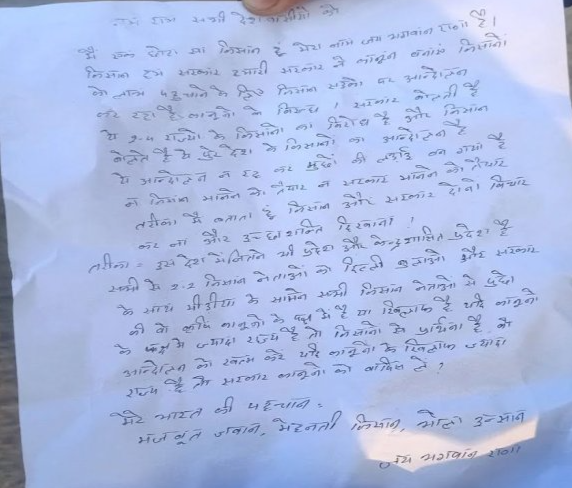 राम राम सभी देशवासीयों को
मैं एक छोटा सा किसान हूँ मेरा नाम जय भगवान राणा है।
किसान हम सरकार हमारी सरकार ने कानून बनाऐ किसानों
को लाभ पहुचाने के लिए किसान सड़को पर आन्दोलन
कर रहा है कानूनो के विरुध। सरकार बोलती है
ये 2-4 राज्यो के किसानो का विरोध है और किसान
बोलते है ये पुरे देश के किसानो का आन्दोलन है
ये आन्दोलन न रह कर मुछों की लड़ाई बन गयी है
न किसान मानने को तैयार न सरकार मानने को तैयार
तरीका मैं बताता हूं किसान और सरकार दोनो विचार
कर ना और शान्ति दिखाना।
तरीका = इस देश में जितने भी प्रदेश और केन्द्रशासित प्रदेश है
सभी से 2-2 किसान नेताओं को दिल्ली बुलाओ और सरकार
के साथ मीडीया के सामने सभी किसान नेताओ से पूछो
की वो कृषि कानूनो के पक्ष में है या खिलाफ है यदि कानूनो
के पक्ष में ज्यादा राज्य है तो किसानो से प्रार्थना है, वो
आन्दोलन को खत्म करे यदि कानूनो के खिलाफ ज्यादा
राज्य है तो सरकार कानूनो को वापिस ले?
मेरे भारत की पहचान:
मजबूत जवान, मेहनती किसान, भोला इन्सान
जय भगवान राणा